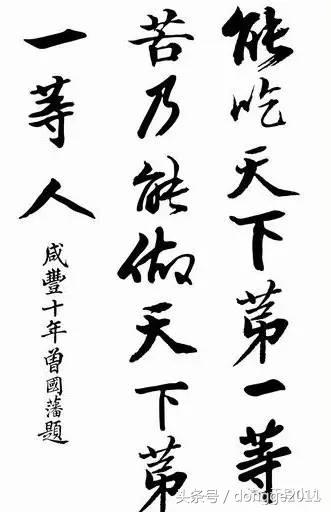 能吃天下第一等
苦乃能做天下第
一等人
咸豐十年曾國藩題
头条号／dongge2011